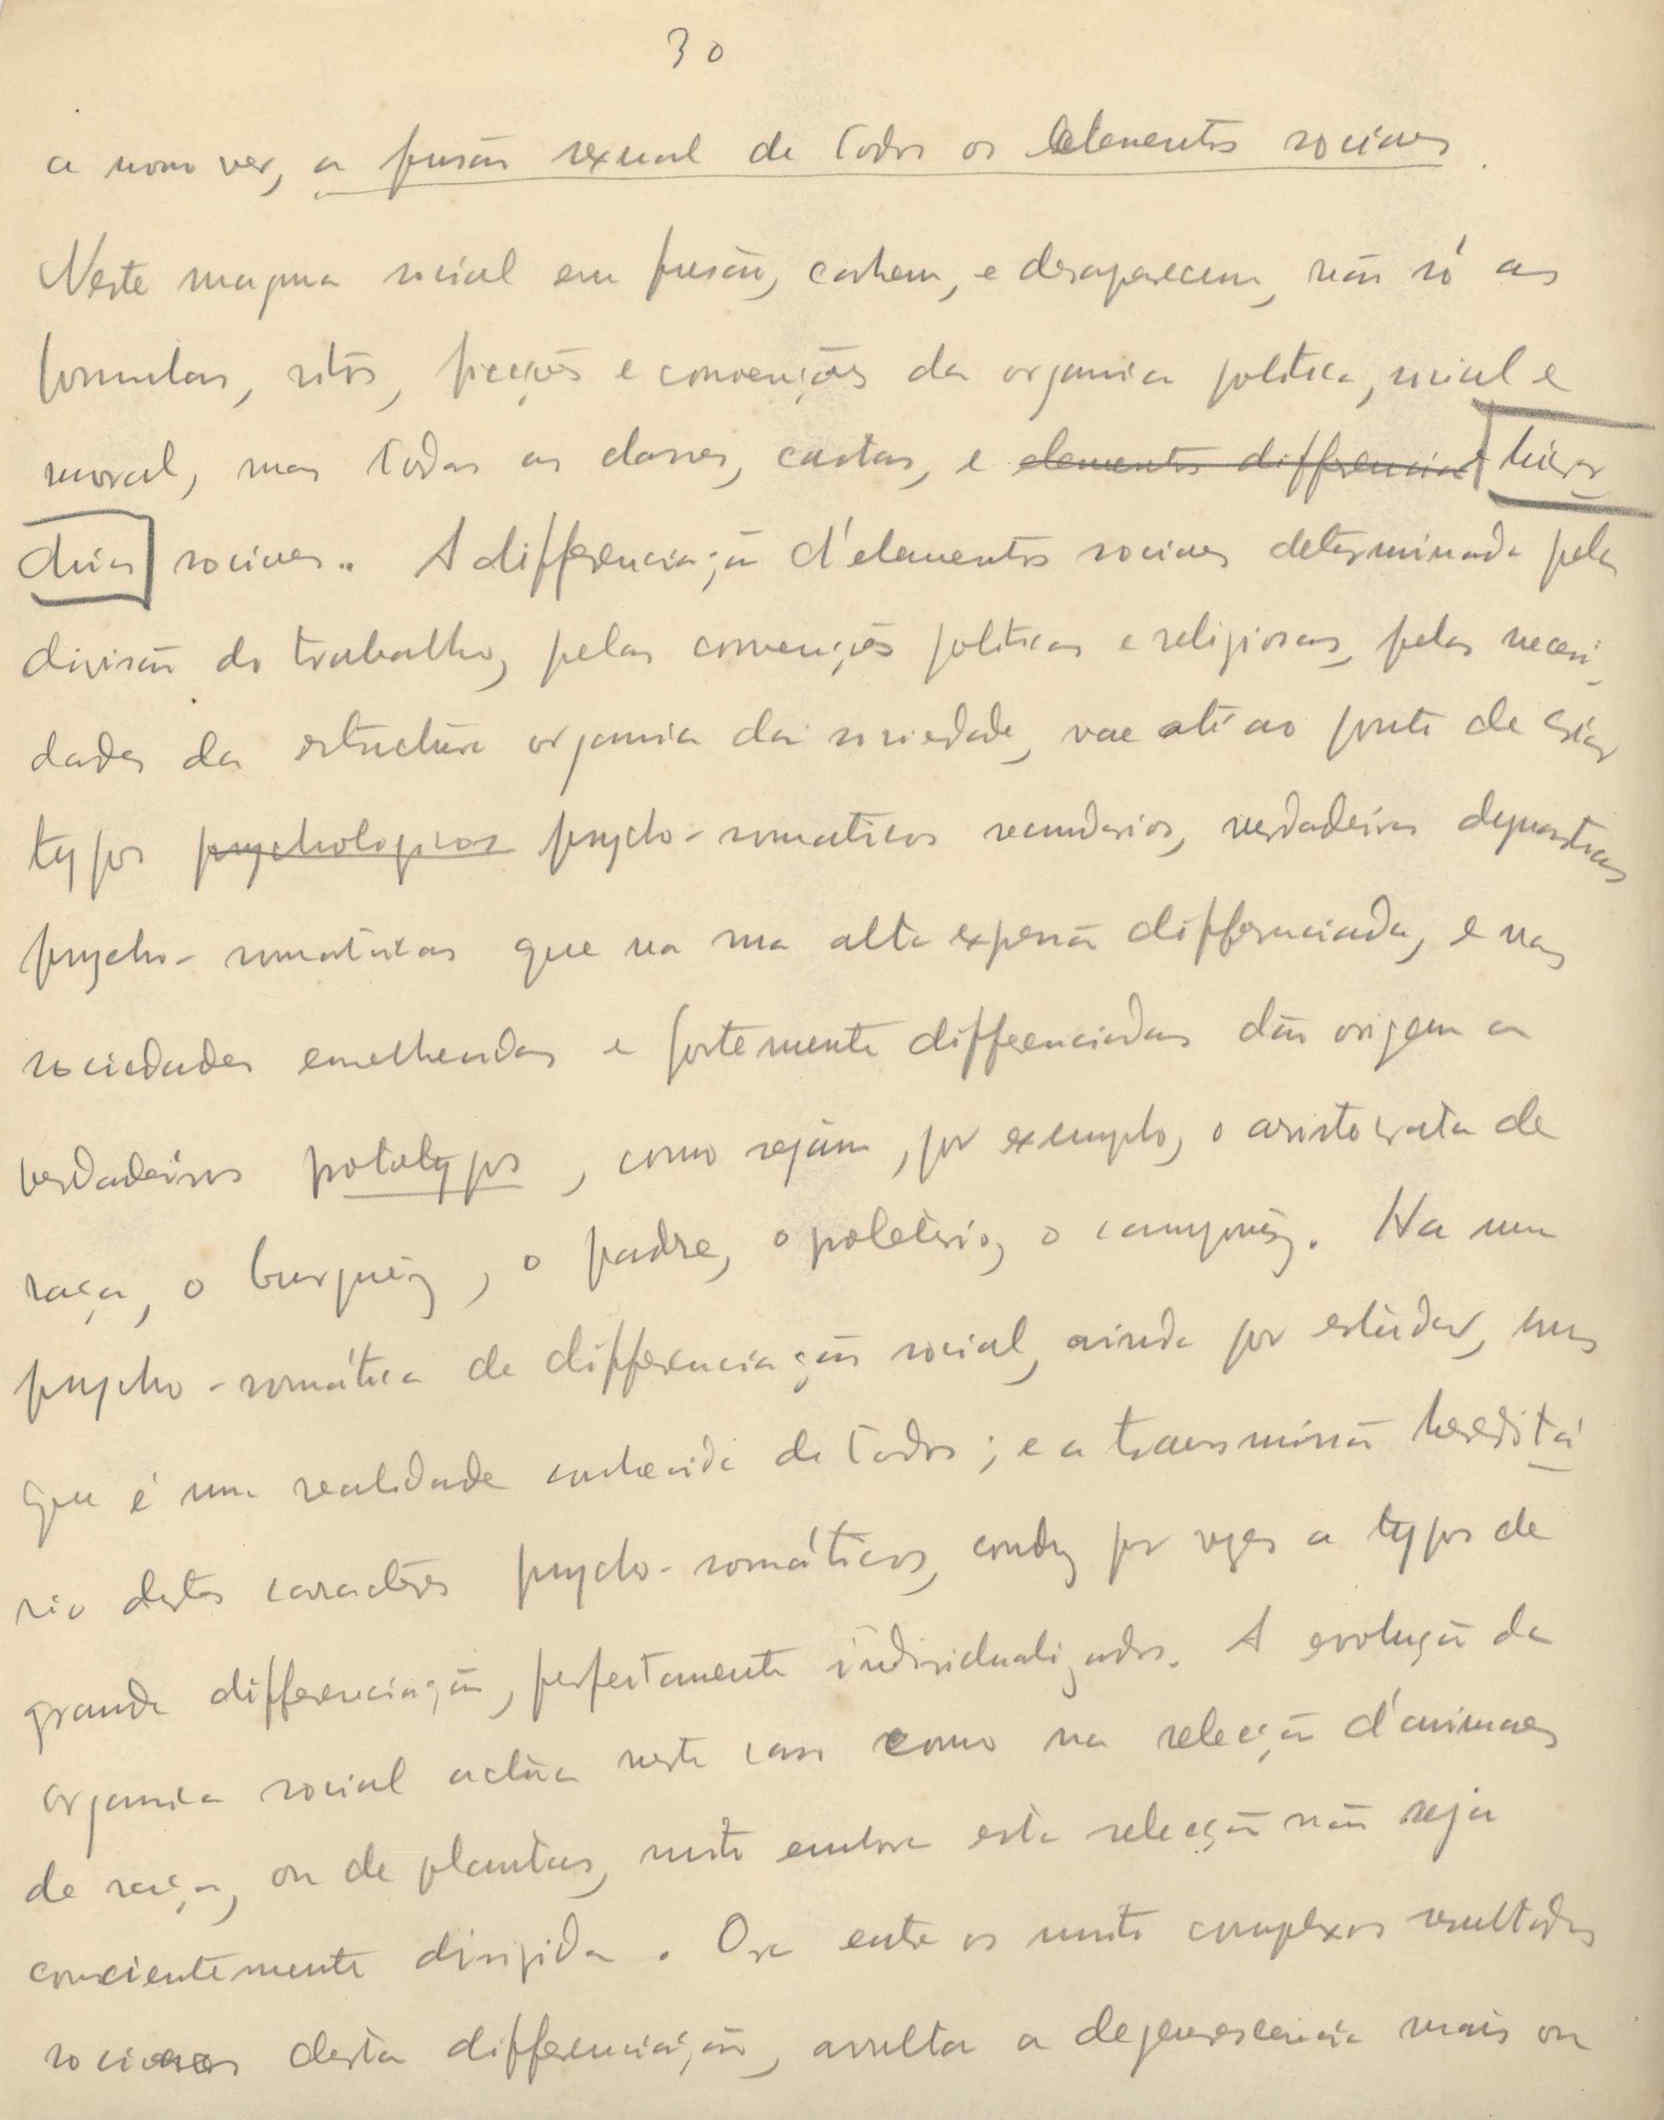 30
a nosso ver, a fusão sexual de todos os elementos sociaes.
Neste magma social em fusão, cahem, e desaparecem, não só as
formulas, ritos, ficções e convenções da organica politica, social e
moral, mas todas as classes, castas, e elementos differenciad hierar
chias sociaes.. A differenciação d'elementos sociaes determinada pela
divisão do trabalho, pelas convenções politicas e religiosas, pelas necessi
dades da estructura organica da sociedade, vae até ao ponto de criar
typos psychologicos psycho-somaticos secundarios, verdadeiras dynastias
psycho-somaticas que na sua alta expressão differenciada, e nas
sociedades envelhecidas e fortemente differenciadas dão origem a
verdadeiros prototypos, como sejam, por exemplo, o aristocrata de
raça, o burguêz, o padre, o proletario, o camponêz. Ha uma
psycho-somática de differenciação social, ainda por estudar, mas
que é uma realidade conhecida de todos; e a transmissão heredita
ria destes caractéres psycho-somáticos, conduz por vezes a typos de
grande differenciação, perfeitamente individualizados. A evolução da
organica social actúa neste caso como na selecção d'animaes
de raça, ou de plantas, muito embora esta selecção não seja
conscientemente dirigida. Ora entre os muito complexos resultados
sociaes desta differenciação, avulta a degenerescencia mais ou